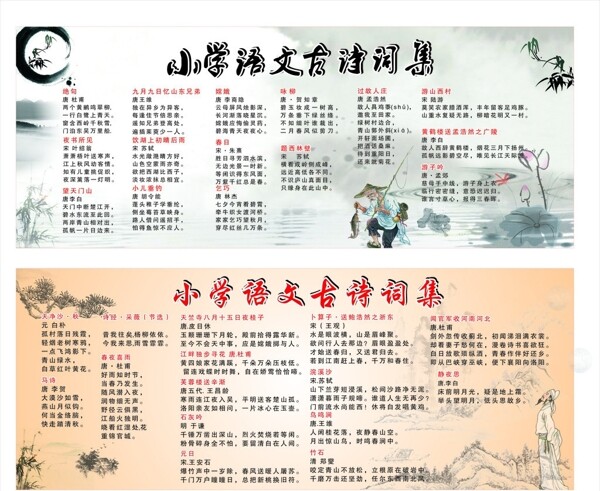 小学语文古诗词集
绝句
唐.杜甫
两个黄鹂鸣翠柳,
一行白鹭上青天。
窗含西岭千秋雪,
门泊东吴万里船。
夜书所见
宋 叶绍翁
萧萧梧叶送寒声,
江上秋风动客情。
知有儿童挑促织,
夜深篱落一灯明。
望天门山
唐 李白
天门中断楚江开,
碧水东流至此回。
两岸青山相对出,
孤帆一片日边来。
九月九日忆山东兄弟
唐.王维
独在异乡为异客,
每逢佳节倍思亲。
遥知兄弟登高处,
遍插茱萸少一人。
饮湖上初晴后雨
宋 苏轼
水光潋滟晴方好,
山色空蒙雨亦奇。
欲把西湖比西子,
淡妆浓抹总相宜。
小儿垂钓
唐 胡令能
蓬头稚子学垂纶,
侧坐莓苔草映身。
路人借问遥招手,
怕得鱼惊不应人。
嫦娥
唐 李商隐
云母屏风烛影深,
长河渐落晓星沉。
嫦娥应悔偷灵药,
碧海青天夜夜心。
春日
宋·朱熹
胜日寻芳泗水滨,
无边光景一时新。
等闲识得东风面,
万紫千红总是春。
乞巧
唐 林杰
七夕今宵看碧霄,
牵牛织女渡河桥。
家家乞巧望秋月,
穿尽红丝几万条。
咏柳
唐·贺知章
碧玉妆成一树高,
万条垂下绿丝绦。
不知细叶谁裁出,
二月春风似剪刀。
题西林壁。
宋 苏轼
横看成岭侧成峰,
远近高低各不同。
不识庐山真面目,
只缘身在此山中。
过故人庄
唐 孟浩然
故人具鸡黍(shǔ),
邀我至田家。
绿树村边合,
青山郭外斜(xiá)
开轩面场圃,
把酒话桑麻。
待到重阳日,
还来就菊花。
游山西村
宋 陆游
莫笑农家腊酒浑,丰年留客足鸡豚。
山重水复疑无路,柳暗花明又一村。
黄鹤楼送孟浩然之广陵
唐 李白
故人西辞黄鹤楼,烟花三月下扬州。
孤帆远影碧空尽,唯见长江天际流。
游子吟
唐.孟郊
慈母手中线,游子身上衣。
临行密密缝,意恐迟迟归。
谁言寸草心,报得三春晖。
小学语文古诗词集
天净沙·秋
元 白朴
孤村落日残霞,
轻烟老树寒鸦,
一点飞鸿影下。
青山绿水,
白草红叶黄花。
马诗
唐 李贺
大漠沙如雪,
燕山月似钩。
何当金络脑,
快走踏清秋。
诗经·采薇(节选)
昔我往矣,杨柳依依。
今我来思,雨雪霏霏。
春夜喜雨
唐·杜甫
好雨知时节,
当春乃发生。
随风潜入夜,
润物细无声。
野径云俱黑,
江船火独明。
晓看红湿处,
花重锦官城。
天竺寺八月十五日夜桂子
唐.皮日休
玉颗珊珊下月轮,殿前拾得露华新。
至今不会天中事,应是嫦娥掷与人。
江畔独步寻花 唐.杜甫
黄四娘家花满蹊,千朵万朵压枝低。
留连戏蝶时时舞,自在娇莺恰恰啼。
芙蓉楼送辛渐
唐.五代.王昌龄
寒雨连江夜入吴,平明送客楚山孤。
洛阳亲友如相问,一片冰心在玉壶。
石灰吟
明 于谦
千锤万凿出深山,烈火焚烧若等闲。
粉骨碎身全不怕,要留清白在人间。
元日
宋.王安石
爆竹声中一岁除,春风送暖入屠苏。
千门万户曈曈日,总把新桃换旧符。
卜算子·送鲍浩然之浙东
宋(王观)
水是眼波横,山是眉峰聚。
欲问行人去那边?眉眼盈盈处。
才始送春归,又送君归去。
若到江南赶上春,千万和春住。
浣溪沙
宋.苏轼
山下兰芽短浸溪,松间沙路净无泥。
潇潇暮雨子规啼。谁道人生无再少?
门前流水尚能西!休将白发唱黄鸡。
鸟鸣涧
唐.王维
人闲桂花落,夜静春山空。
月出惊山鸟,时鸣春涧中。
竹石
清 郑燮
咬定青山不放松,立根原在破岩中。
千磨万击还坚劲,任尔东西南北风
闻官军收河南河北
唐.杜甫
剑外忽传收蓟北,初闻涕泪满衣裳。
却看妻子愁何在,漫卷诗书喜欲狂。
白日放歌须纵酒,青春作伴好还乡。
即从巴峡穿巫峡,便下襄阳向洛阳。
静夜思
唐.李白
床前明月光,疑是地上霜。
举头望明月,低头思故乡。